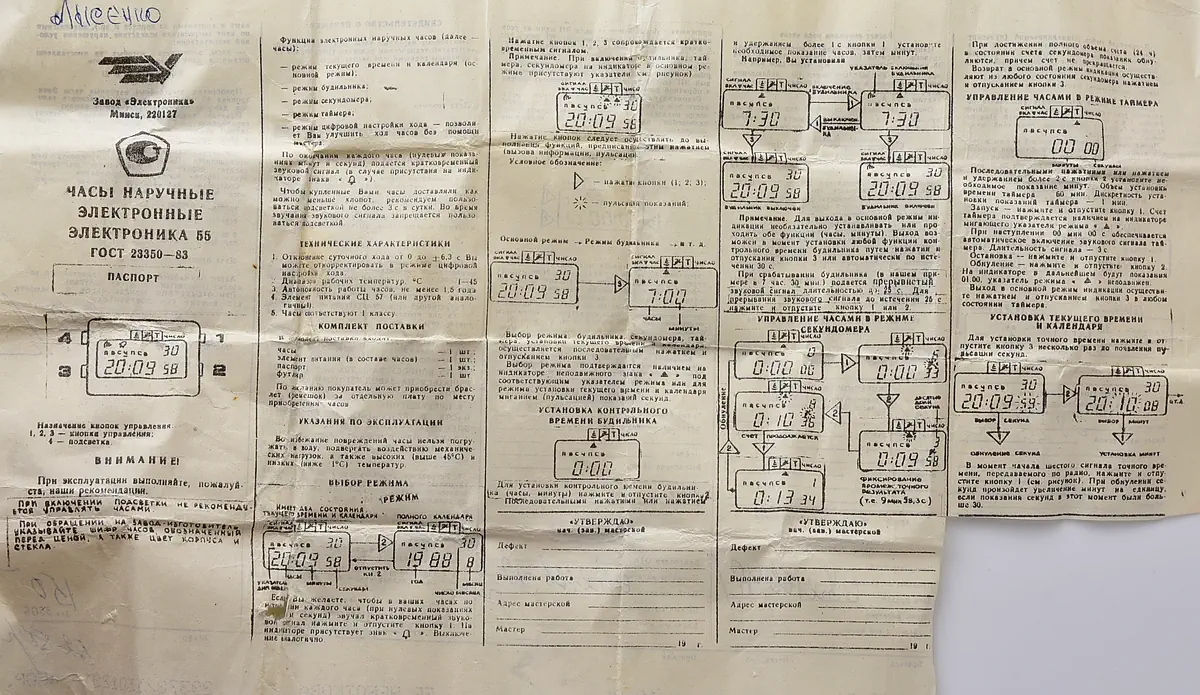 Лисенко
Завод «Электроника»
Минск, 220127
ЧАСЫ НАРУЧНЫЕ
ЭЛЕКТРОННЫЕ
ЭЛЕКТРОНИКА 55
ГОСТ 23350—83
ПАСПОРТ
4 1
3 2
ПВСЧПСВ 30
20:09 58
Назначение кнопок управления:
1, 2, 3 — кнопка управления;
4 — подсветка.
ВНИМАНИЕ!
При эксплуатации выполняйте, пожалуй-
ста, наши рекомендации.
ПРИ ВКЛЮЧЕНИИ ПОДСВЕТКИ НЕ РЕКОМЕНДУ-
ЕТСЯ УПРАВЛЯТЬ ЧАСАМИ
ПРИ ОБРАЩЕНИИ НА ЗАВОД-ИЗГОТОВИТЕЛЬ
УКАЗЫВАЙТЕ ШИФР ЧАСОВ, ОБОЗНАЧЕННЫЙ
ПЕРЕД ЦЕНОЙ, А ТАКЖЕ ЦВЕТ КОРПУСА И
СТЕКЛА.
Функции электронных наручных часов (далее —
часы):
— режим текущего времени и календаря (ос
новной режим);
— режим будильника;
— режим секундомера;
— режим таймера;
— режим цифровой настройки хода — позволя
ет Вам улучшить ход часов без помощи
мастера.
По окончании каждого часа (нулевых показа-
ниях минут и секунд) подается кратковременный
звуковой сигнал (в случае присутствия на инди-
каторе знака « »).
Чтобы купленные Вами часы доставляли как
можно меньше хлопот, рекомендуем пользо-
ваться подсветкой не более 3 с в сутки. Во время
звучания звукового сигнала запрещается пользо-
ваться подсветкой.
ТЕХНИЧЕСКИЕ ХАРАКТЕРИСТИКИ
1. Отклонение суточного хода от 0 до +6,3 с Вы
можете откорректировать в режиме цифровой
настройки хода.
2. Диапазон рабочих температур, °С 1—45
3. Автономность работы часов, не менее 1,5 года
4. Элемент питания СЦ 57 (или другой анало-
гичный).
5. Часы соответствуют 1 классу.
КОМПЛЕКТ ПОСТАВКИ
Часы — 1 шт.;
элемент питания (в составе часов) — 1 шт.;
паспорт — 1 экз.;
футляр — 1 шт
По желанию покупатель может приобрести брас-
лет (ремешок) за отдельную плату по месту
приобретения часов.
УКАЗАНИЯ ПО ЭКСПЛУАТАЦИИ
Во избежание повреждений часы нельзя погру-
жать в воду, подвергать воздействию механиче-
ских нагрузок, а также высоких (выше 45°С) и
низких (ниже 1°С) температур.
ВЫБОР РЕЖИМА
РЕЖИМ
ИМЕЕТ ДВА СОСТОЯНИЯ
ТЕКУЩЕГО ВРЕМЕНИ И КАЛЕНДАРЯ ПОЛНОГО КАЛЕНДАРЯ
ПВСЧПСВ 30
20:09 58
2
ОТПУСТИТЬ
КН. 2
ПВСЧПСВ 30
1988 8
ЧАСЫ МИНУТЫ СЕКУНДЫ
ГОД МЕСЯЦ
ЧИСЛО МЕСЯЦА
Если Вы желаете, чтобы в ваших часах по
каждого часа (при нулевых показаниях
и секунд) звучал кратковременный звуко-
нажмите и отпустите кнопку 1. На
индикаторе присутствует знак « ». Выключе-
ние аналогично.
Нажатие кнопок 1, 2, 3 сопровождается кратко-
временным сигналом.
Примечание. При включении будильника, тай
мера, секундомера на индикаторе в основном ре-
жиме присутствуют указатели (см. рисунок)
СИГНАЛ
ВКЛ ЧАС Т ЧИСЛО
ПВСЧПСВ 30
20:09 58
Нажатие кнопок следует осуществлять до вы-
полнения функций, предписанных этим нажатием
(вызова информации, пульсации).
Условное обозначение:
— нажатие кнопки (1; 2; 3);
— пульсация показаний;
Основной режим → Режим будильника → и т. д.
СИГНАЛ
ВКЛ ЧАС Т ЧИСЛО
ПВСЧПСВ 30
20:09 58
3
СИГНАЛ
ВКЛ ЧАС Т ЧИСЛО
ПВСЧПСВ
7:00
ЧАСЫ МИНУТЫ
Выбор режима будильника, секундомера, тай-
мера, установки текущего времени и календаря
осуществляется последовательным нажатием и
отпусканием кнопки 3.
Выбор режима подтверждается наличием на
индикаторе неподвижного знака « ▲ » под
соответствующим указателем режима или для
режима установки текущего времени и календаря
миганием (пульсацией) показаний секунд.
УСТАНОВКА КОНТРОЛЬНОГО
ВРЕМЕНИ БУДИЛЬНИКА
Т ЧИСЛО
ПВСЧПСВ
0:00
Для установки контрольного времени будильни-
ка (часы, минуты) нажмите и отпустите кнопку 2.
Последовательным нажатием или нажатием
«УТВЕРЖДАЮ»
нач. (зав.) мастерской
Дефект
Выполнена работа
Адрес мастерской
Мастер
19 г.
и удержанием более 1 с кнопки 1 установите
необходимое показание часов, затем минут.
Например, Вы установили
УКАЗАТЕЛЬ ВКЛЮЧЕНИЯ
БУДИЛЬНИКА
СИГНАЛ
ВКЛ ЧАС Т ЧИСЛО
ПВСЧПСВ
7:30
ВКЛЮЧЕНИЕ
БУДИЛЬНИКА
1
ВЫКЛЮЧЕНИЕ
БУДИЛЬНИКА
ПВСЧПСВ
7:30
3 3
ПВСЧПСВ 30
20:09 58
ПВСЧПСВ 30
20:09 58
БУДИЛЬНИК ВЫКЛЮЧЕН БУДИЛЬНИК ВКЛЮЧЕН
Примечание. Для выхода в основной режим ин-
дикации необязательно устанавливать или про-
ходить обе функции (часы, минуты). Выход воз-
можен в момент установки любой функции кон-
трольного времени будильника путем нажатия и
отпускания кнопки 3 или автоматически по исте-
чении 30 с.
При срабатывании будильника (в нашем при-
мере в 7 час. 30 мин.) подается прерывистый
звуковой сигнал длительностью до 25 с. Для
прерывания звукового сигнала до истечения 25 с
нажмите и отпустите кнопку 1 или 2.
УПРАВЛЕНИЕ ЧАСАМИ В РЕЖИМЕ
СЕКУНДОМЕРА
ПВСЧПСВ 0
0:00 00
1
0:00 33
Обнуление
0:10 36
2
ДЕСЯТЫЕ
ДОЛИ
СЕКУНДЫ
СЧЕТ ПРОДОЛЖАЕТСЯ
0:09 58
0:13 34
ФИКСИРОВАНИЕ
ПРОМЕЖУТОЧНОГО
РЕЗУЛЬТАТА
(т.е. 9 мин 58,3 с.)
«УТВЕРЖДАЮ»
нач. (зав.) мастерской
Дефект
Выполнена работа
Адрес мастерской
Мастер
19 г.
При достижении полного объема счета (24 ч)
в состоянии счета секундомера показания обну-
ляются, причем счет не прекращается.
Возврат в основной режим индикации осуществ-
ляют из любого состояния секундомера нажатием
и отпусканием кнопки 3.
УПРАВЛЕНИЕ ЧАСАМИ В РЕЖИМЕ ТАЙМЕРА
СИГНАЛ
ВКЛ ЧАС Т ЧИСЛО
ПВСЧПСВ
00 00
МИНУТЫ СЕКУНДЫ
Последовательными нажатиями или нажатием
и удержанием более 2 с кнопки 2 установите не-
обходимое показание минут. Объем установки
времени таймера 60 мин. Дискретность уста-
новки показаний таймера — 1 мин.
Запуск — нажмите и отпустите кнопку 1. Счет
таймера подтверждается наличием на индикаторе
мигающего указателя режима « ▲ ».
При наступлении 00 мин 00 с обеспечивается
автоматическое включение звукового сигнала тай-
мера. Длительность сигнала — 3 с.
Остановка — нажмите и отпустите кнопку 1.
Обнуление — нажмите и отпустите кнопку 2.
На индикаторе в дальнейшем будут показания
01.00, указатель режима « ▲ » неподвижен.
Выход в основной режим индикации осущест-
вите нажатием и отпусканием кнопки 3 в любом
состоянии таймера.
УСТАНОВКА ТЕКУЩЕГО ВРЕМЕНИ
И КАЛЕНДАРЯ
Для установки точного времени нажмите и от-
пустите кнопку 3 несколько раз до появления пу-
льсации секунд.
ПВСЧПСВ 30
20:09 59
2
ПВСЧПСВ 30
20:10 08
и т.д.
ВЫБОР СЕКУНД ВЫБОР МИНУТ
1 1
ОБНУЛЕНИЕ СЕКУНД УСТАНОВКА МИНУТ
В момент начала шестого сигнала точного вре-
мени, передаваемого по радио, нажмите и отпу-
стите кнопку 1 (см. рисунок). При обнулении се-
кунд произойдет увеличение минут на единицу,
если показания секунд в этот момент были боль-
ше 30.